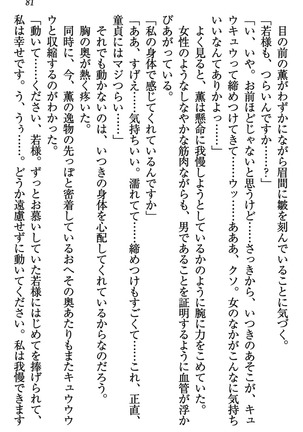 81
目の前の薫がわずかながら眉間に皺を刻んでいることに気がついた。
「若様も、つらいんですか……?」
「い、いや。お前ほどじゃないと思うけど……さっきから、いつきのあそこが、キュ
ウキュウって締めつけてきて……ウッ……あああ、クソ。女のなかがこんな気持ち
よく見ると、薫は懸命に我慢しようとしているかのように腕に力をこめている。
女性のようなしなやかな筋肉ながらも、男であることを証明するように血管が浮か
びあがっている。
「私の身体で感じてくれているんですか」
「ああ、すげえ……気持ちいい。濡れてて……締めつけもすごくて……これ、正直、
童貞にはマジつらい……」
それでも動かないのは、いつきの身体を心配してくれているからなのだろう。
胸の奥が熱く疼いた。
同時に、今、薫の逸物の先っぽと密着しているおへその奥あたりもまたキュウウウ
ウと収縮するのがわかった。
「動いて……ください、若様。ずっとお慕いしていた若様にはじめてを捧げられて、
私は幸せです。う、うぅ……。どうか遠慮せずに動いてください。私は我慢できます